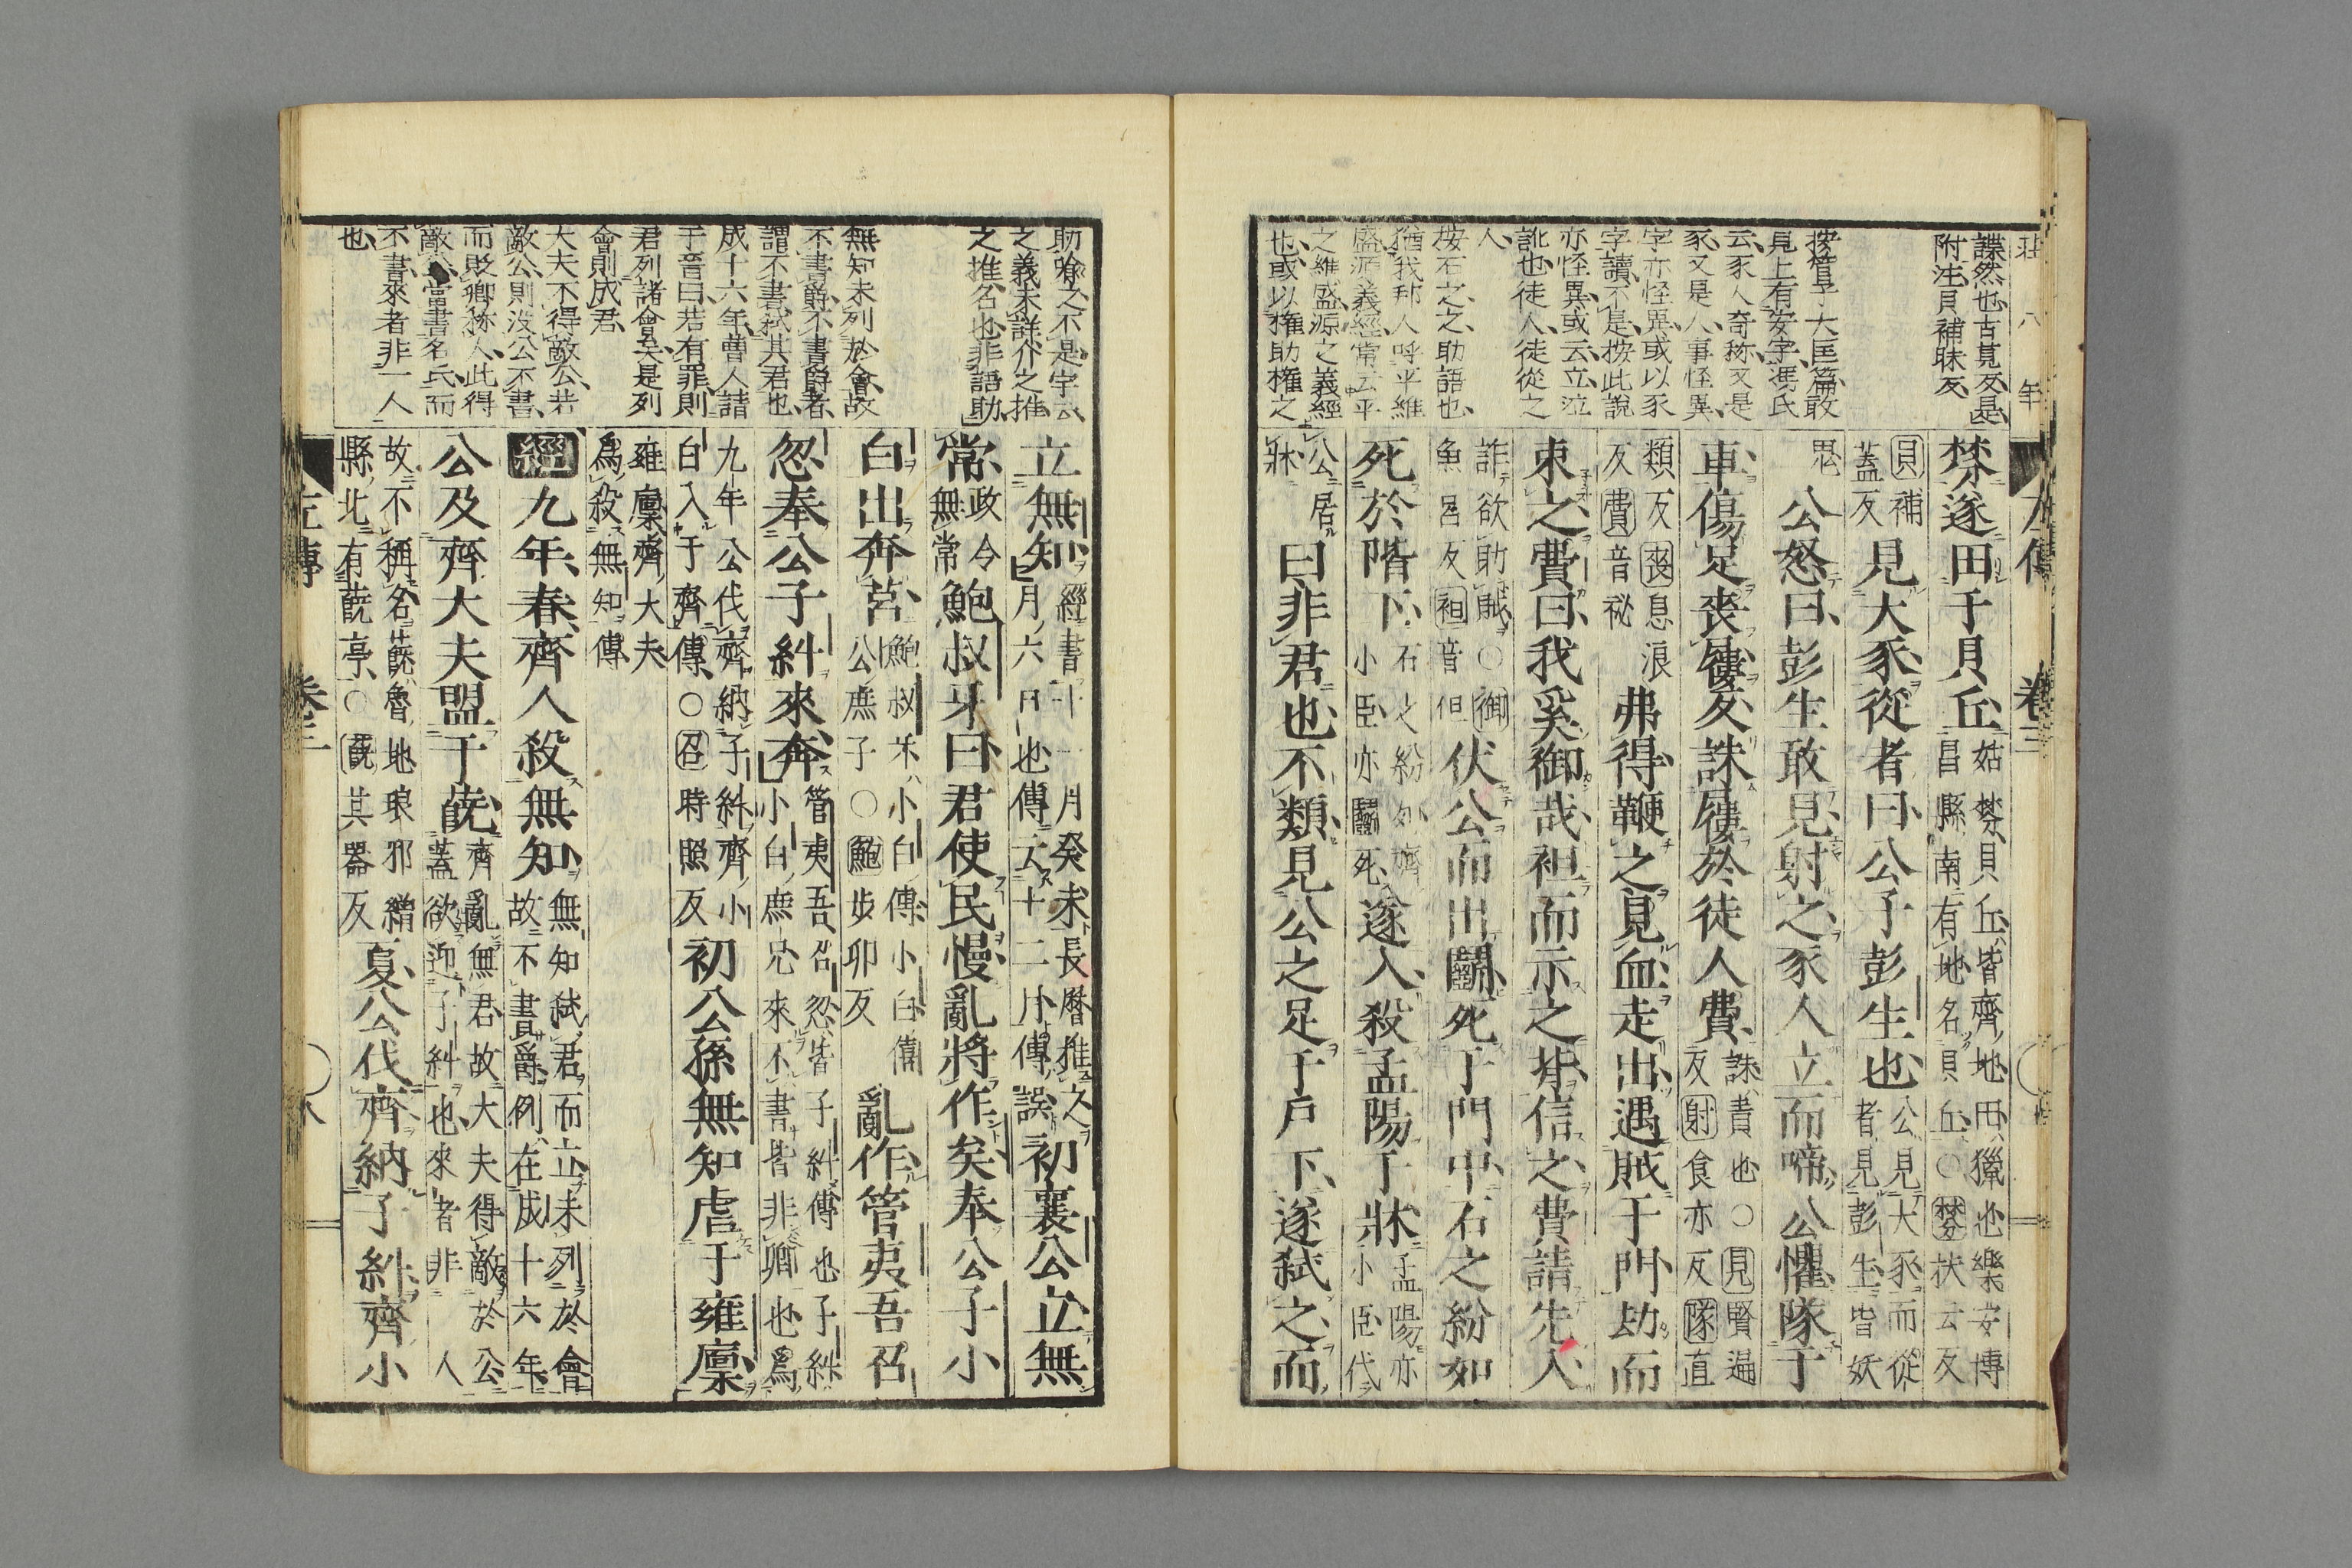 莊八年
諜然也古莧反是
附注貝補昧反
按管子大匡篇敢
見上有安字馮氏
云豕人奇称又是
豕又是人事怪異
字亦怪異或以豕
字讀不是按此說
亦怪異或云立泣
訛也徒人徒從之
人
按石之之助語也
猶我邦人呼平維
盛源義經常云平
之維盛源之義經
也或以権助権之
左傳 卷三
棼遂田于貝丘姑棼貝丘皆齊地田獵也樂安博昌縣南有地名貝丘○棼扶云反
貝補蓋反見大豕從者曰公子彭生也公見大豕而從者見彭生皆妖
鬼公怒曰彭生敢見射之豕人立而啼公懼隊于
車傷足喪屨反誅屨於徒人費誅責也○見賢遍反射食亦反隊直
類反喪息浪反費音祕弗得鞭之見血走出遇賊于門劫而
束之費曰我奚御哉袒而示之背信之費請先入
詐欲助賊○御魚呂反袒音但伏公而出鬭死于門中石之紛如
死於階下石之紛如齊小臣亦鬭死遂入殺孟陽于牀孟陽亦小臣代
公居牀曰非君也不類見公之足于戶下遂弑之而
助喩之不是宇云
之義未詳介之推
之推名也非語助
無知未列於會故
不書爵不書爵者
謂不書弑其君也
成十六年曹人請
于晉曰若有罪則
君列諸會矣是列
會則成君
大夫不得敵公若
敵公則沒公不書
而敗卿称人此得
敵當書名氏而
不書來者非一人
也
立無知經書十一月癸未長曆推之月六日也傳云十二月傳誤初襄公立無
常政令無常鮑叔牙曰君使民慢亂將作矣奉公子小
白出奔莒鮑叔牙小白傅小白僖公庶子○鮑步卯反亂作管夷吾召
忽奉公子糾來奔管夷吾召忽皆子糾傅也子糾小白庶兄來不書皆非卿也爲
九年公伐齊納子糾齊小白入于齊傳○召時照反初公孫無知虐于雍廩
雍廩齊大夫爲殺無知傳
經九年春齊人殺無知無知弑君而立未列於會故不書爵例在成十六年
公及齊大夫盟于蔇齊亂無君故大夫得敵於公蓋欲迎子糾也來者非一人
故不稱名蔇魯地琅邪繒縣北有蔇亭○蔇其器反夏公伐齊納子糾齊小
左傳 卷三 八